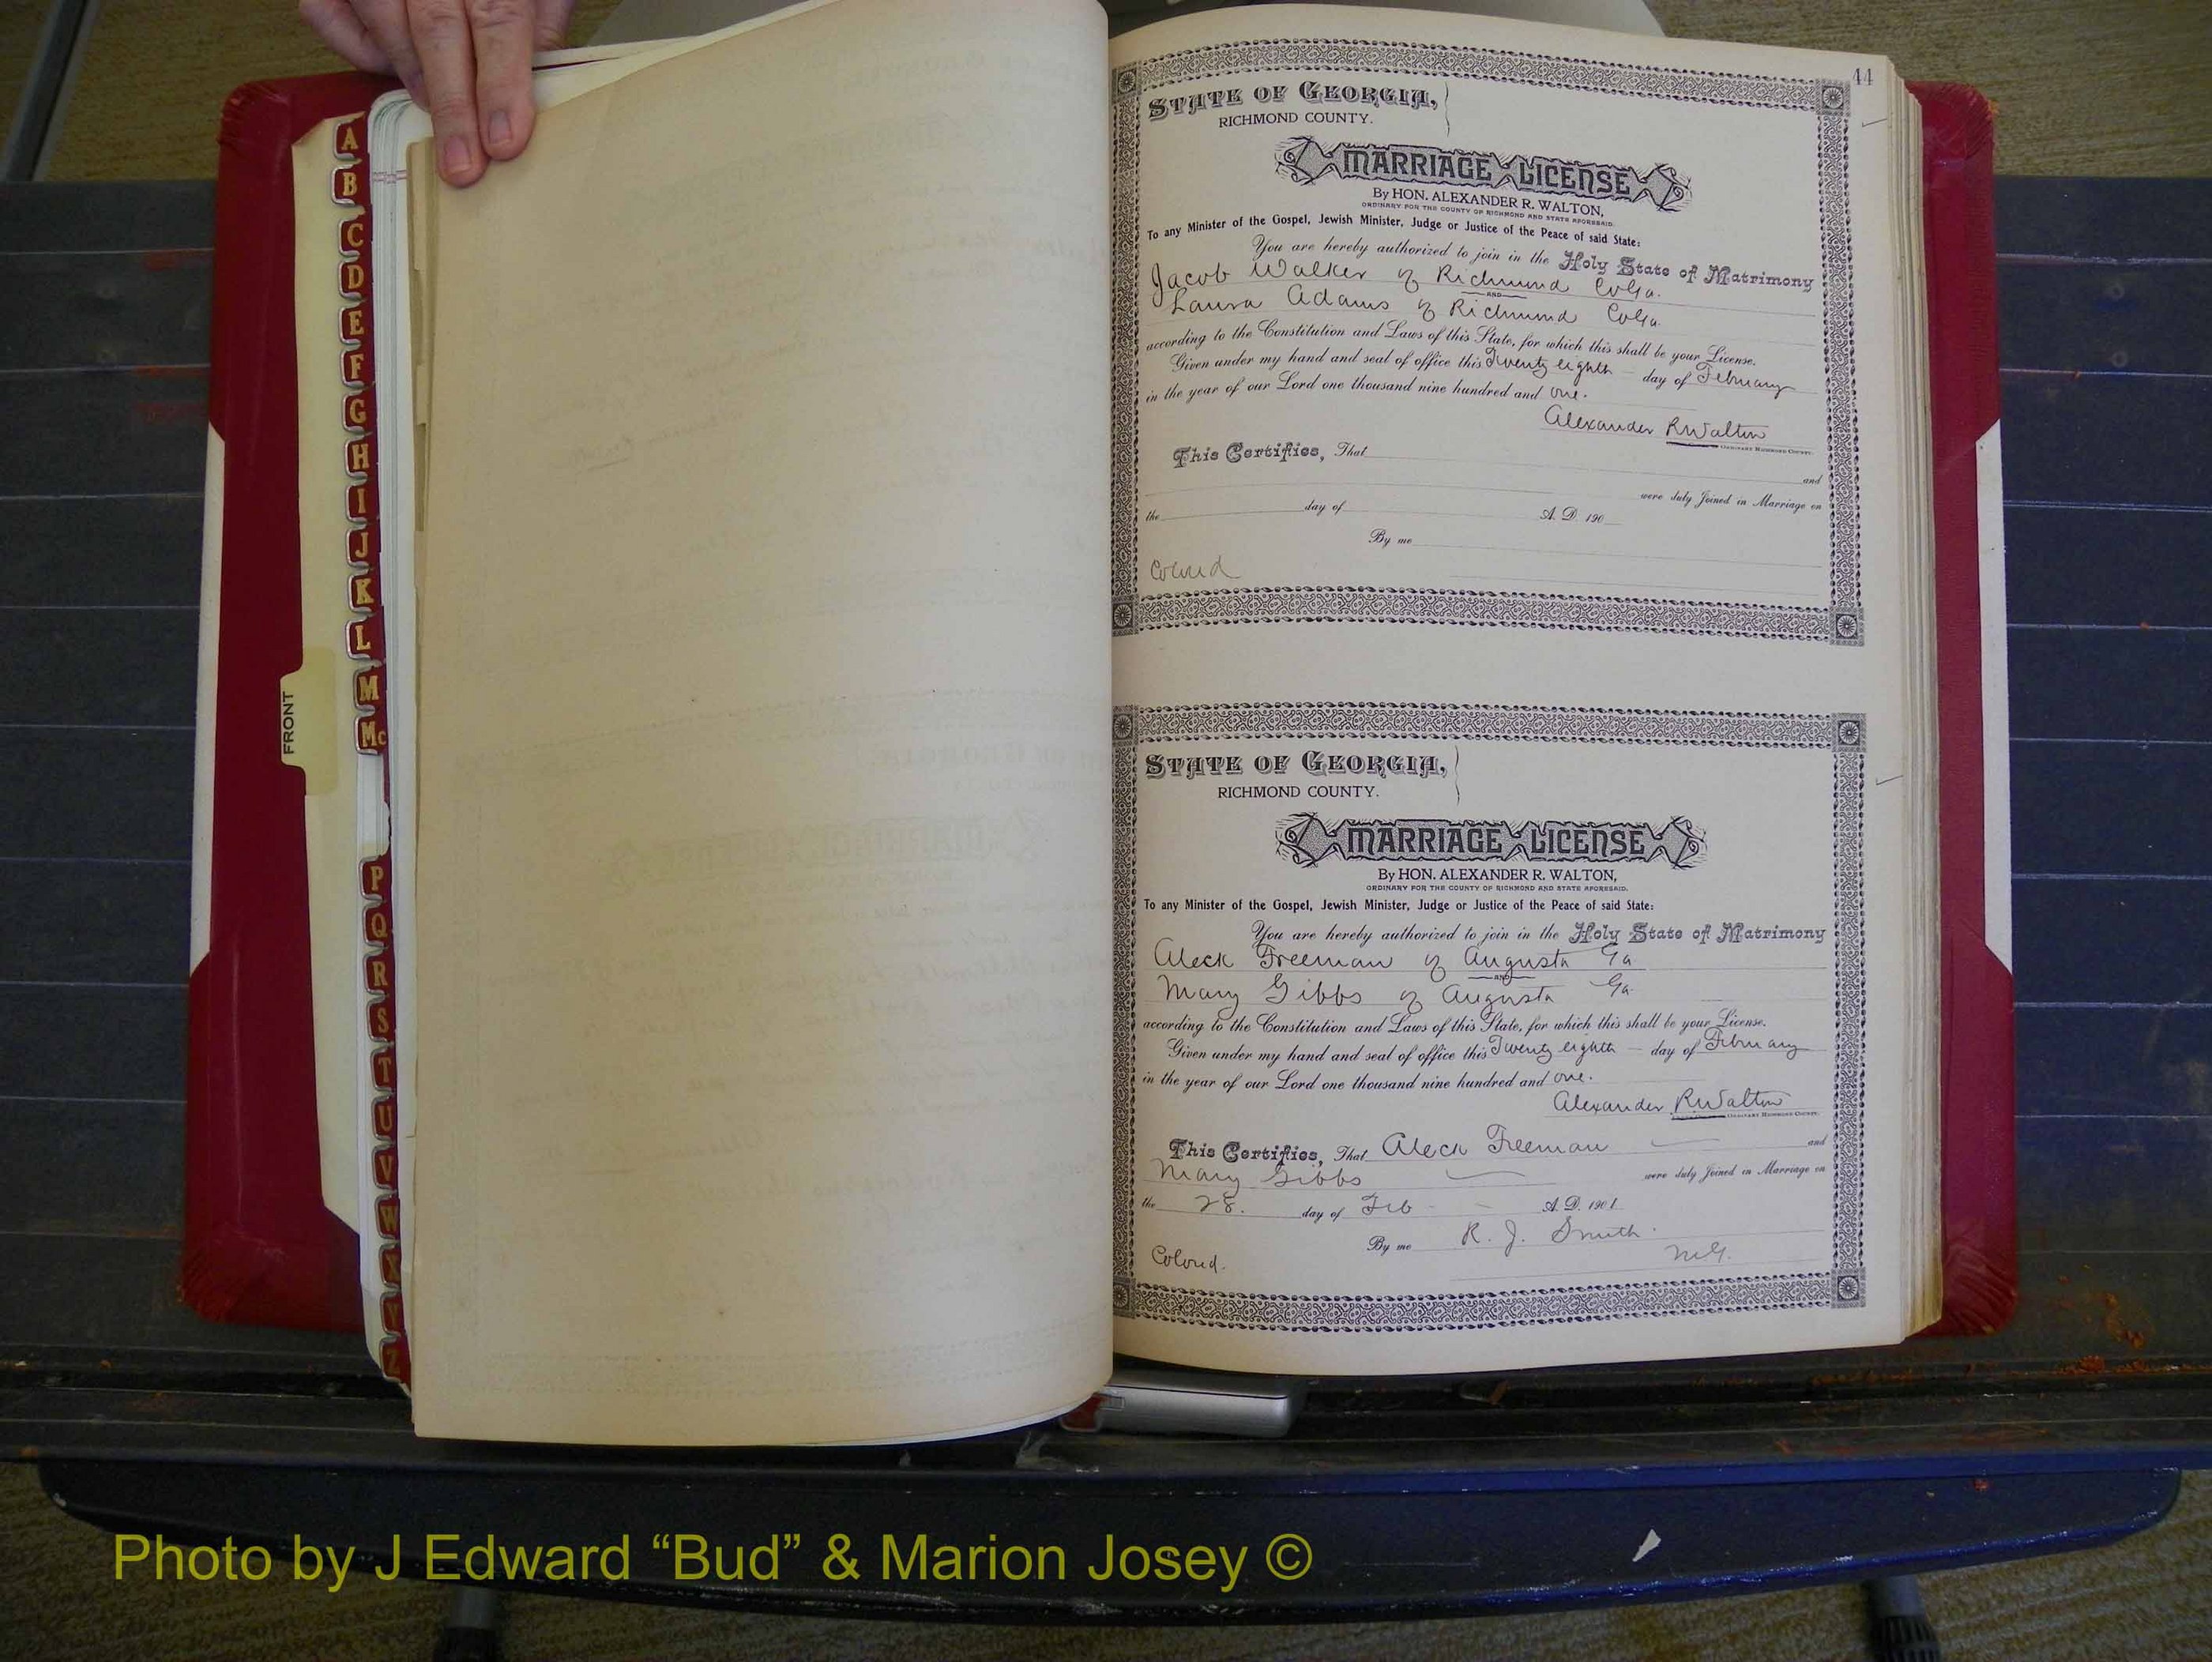 A
B
C
D
E
F
G
H
I
J
K
L
M
Mc
P
Q
R
S
T
U
V
W
X
Y
Z
FRONT
44
STATE OF GEORGIA,
RICHMOND COUNTY.
MARRIAGE LICENSE
By HON. ALEXANDER R. WALTON,
ORDINARY FOR THE COUNTY OF RICHMOND AND STATE AFORESAID.
To any Minister of the Gospel, Jewish Minister, Judge or Justice of the Peace of said State:
You are hereby authorized to join in the Holy State of Matrimony
Jacob Walker of Richmond Co Ga.
AND
Laura Adams of Richmond Co Ga.
according to the Constitution and Laws of this State, for which this shall be your License.
Given under my hand and seal of office this Twenty eighth day of February
in the year of our Lord one thousand nine hundred and one.
Alexander R Walton
ORDINARY RICHMOND COUNTY.
This Certifies, That
and
were duly Joined in Marriage on
the day of A. D. 190
By me
Colored
STATE OF GEORGIA,
RICHMOND COUNTY.
MARRIAGE LICENSE
By HON. ALEXANDER R. WALTON,
ORDINARY FOR THE COUNTY OF RICHMOND AND STATE AFORESAID.
To any Minister of the Gospel, Jewish Minister, Judge or Justice of the Peace of said State:
You are hereby authorized to join in the Holy State of Matrimony
Aleck Freeman of Augusta Ga
AND
Mary Gibbs of Augusta Ga.
according to the Constitution and Laws of this State, for which this shall be your License.
Given under my hand and seal of office this Twenty eighth day of February
in the year of our Lord one thousand nine hundred and one.
Alexander R Walton
ORDINARY RICHMOND COUNTY.
This Certifies, That Aleck Freeman and
Mary Gibbs were duly Joined in Marriage on
the 28. day of Feb A. D. 1901
By me R. J. Smith.
M.G.
Colored.
Photo by J Edward “Bud” & Marion Josey ©